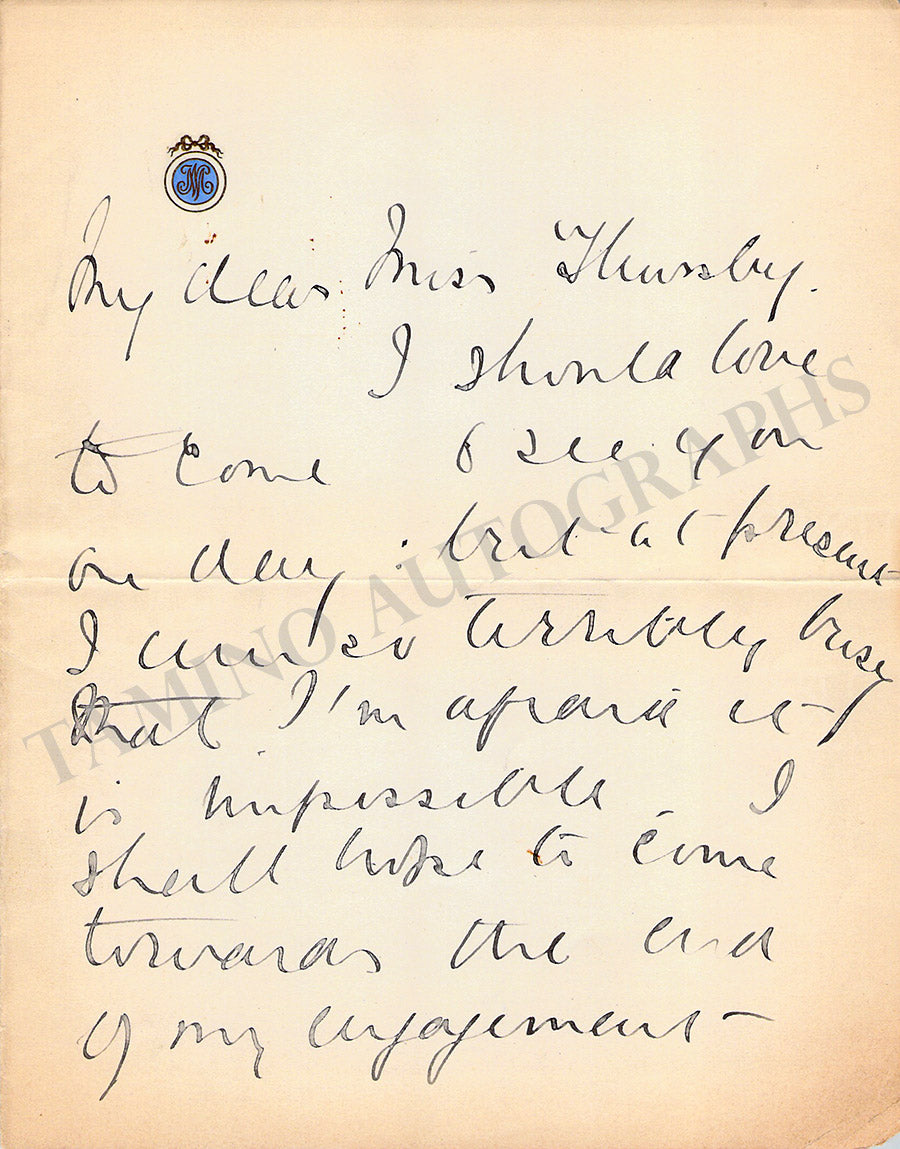 My dear Miss Thursby.
I should love
to come to see you
one day . but at present
I am so terribly busy
that I'm afraid it
is impossible. I
shall hope to come
towards the end
of my engagement
TAMINO AUTOGRAPHS